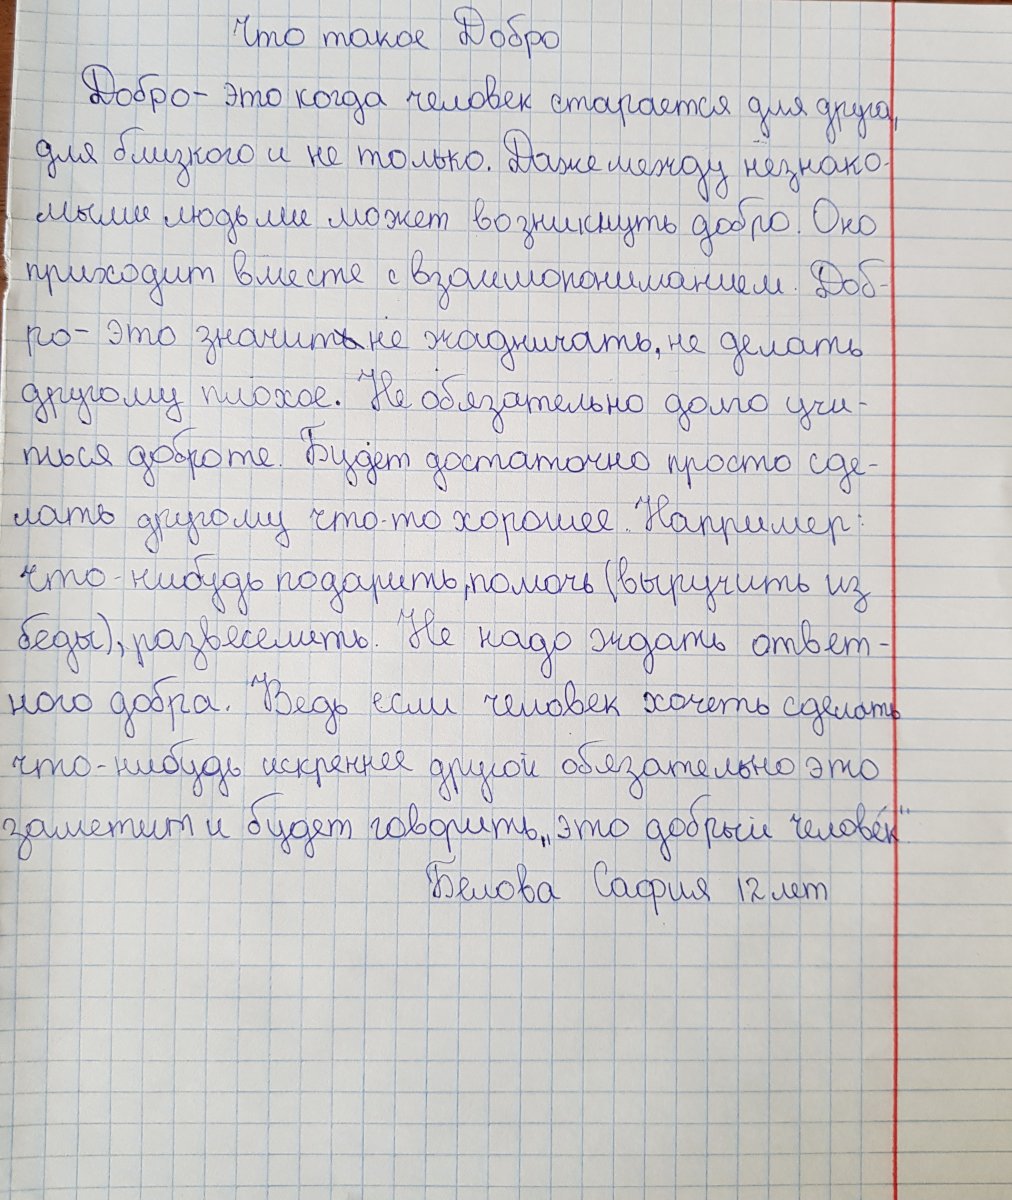 Что такое Добро
Добро - это когда человек старается для друга,
для близкого и не только. Даже между незнако-
мыми людьми может возникнуть добро. Оно
приходит вместе с взаимопониманием. Доб-
ро - это значить не жадничать, не делать
другому плохое. Не обязательно долго учи-
ться доброте. Будет достаточно просто сде-
лать другому что-то хорошее. Например:
что-нибудь подарить, помочь (выручить из
беды), развеселить. Не надо ждать ответ-
ного добра. Ведь если человек хочеть сделать
что-нибудь искреннее другой обязательно это
заметит и будет говорить „это добрый человек"
Белова Сафия 12 лет